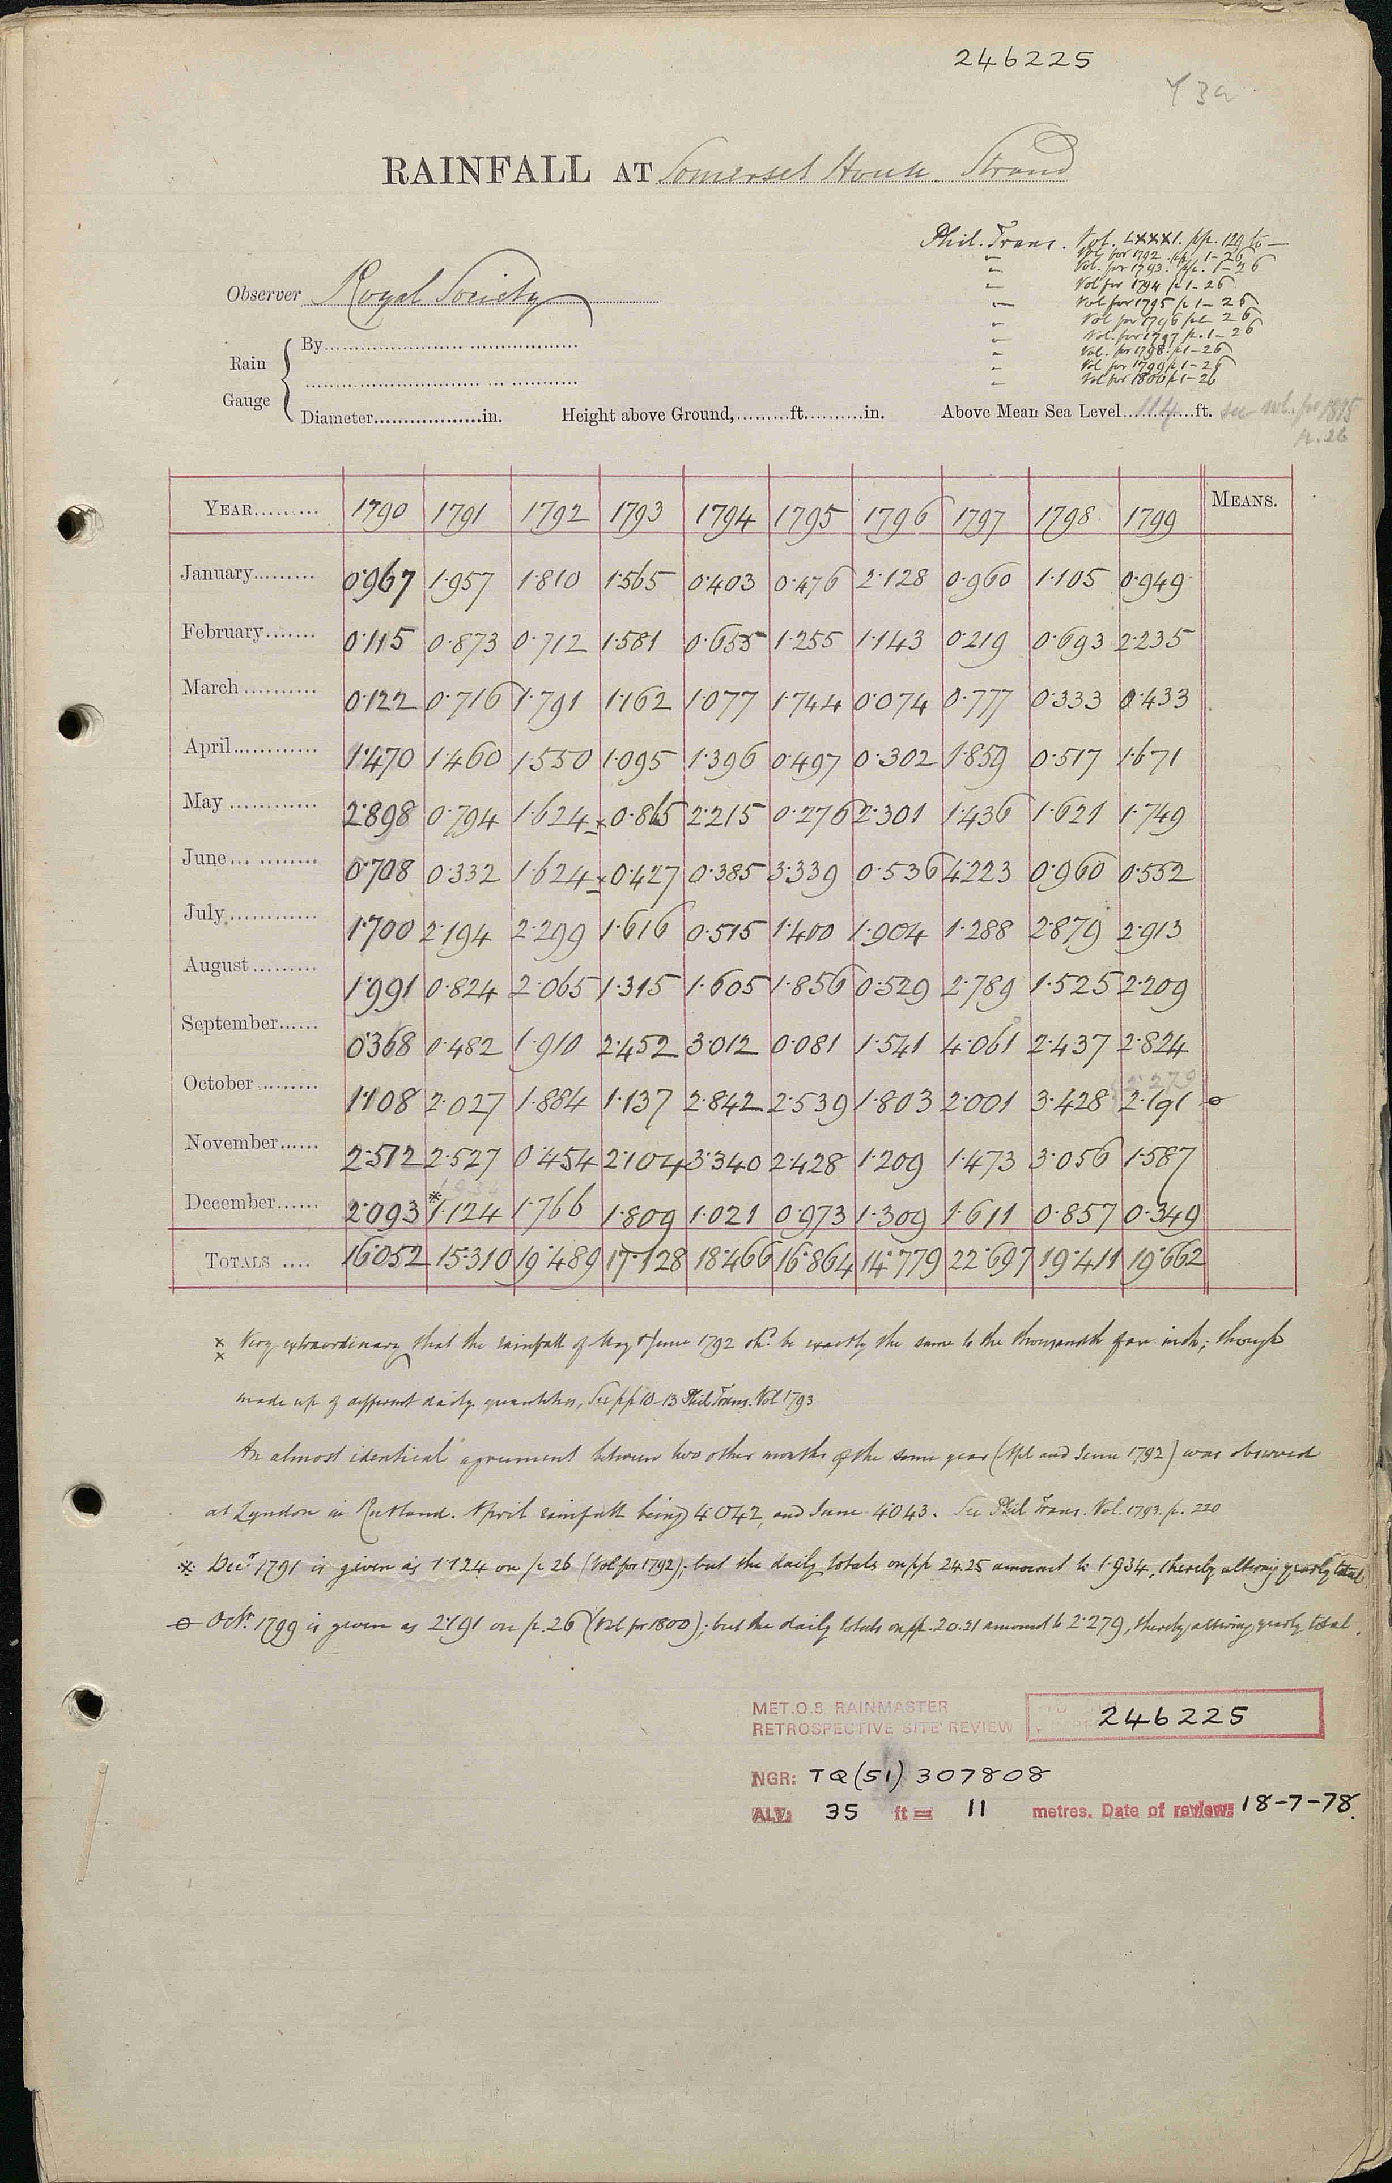 246225
RAINFALL AT Somerset House. Strand
Phil. Trans. Vol. LXXXI. pp. 129 to —
" Vol for 1792. pp. 1-26
" Vol. for 1793. pp. 1-26
" Vol for 1794 p 1-26
" Vol for 1795 p 1-26
" Vol for 1796 p 1- 26
" Vol. for 1797 p. 1-26
" Vol. for 1798. p 1-26
" Vol for 1799 p 1-26
" Vol for 1800 p 1-26
Observer Royal Society
Rain Gauge
By
Diameter in. Height above Ground, ft. in. Above Mean Sea Level 114 ft. see vol. for 1815
p. 26
YEAR 1790 1791 1792 1793 1794 1795 1796 1797 1798 1799 MEANS.
January 0·967 1·957 1·810 1·565 0·403 0·476 2·128 0·960 1·105 0·949
February 0·115 0·873 0·712 1·581 0·655 1·255 1·143 0·219 0·693 2·235
March 0·122 0·716 1·791 1·162 1·077 1·744 0·074 0·777 0·333 0·433
April 1·470 1·460 1·550 1·095 1·396 0·497 0·302 1·859 0·517 1·671
May 2·898 0·794 1·624 × 0·865 2·215 0·276 2·301 1·436 1·621 1·749
June 0·708 0·332 1·624 × 0·427 0·385 3·339 0·536 4·223 0·960 0·552
July 1·700 2·194 2·299 1·616 0·515 1·400 1·904 1·288 2·879 2·913
August 1·991 0·824 2·065 1·315 1·605 1·856 0·529 2·789 1·525 2·209
September 0·368 0·482 1·910 2·452 3·012 0·081 1·541 4·061 2·437 2·824
2·279
October 1·108 2·027 1·884 1·137 2·842 2·539 1·803 2·001 3·428 2·191 o
November 2·512 2·527 0·454 2·104 3·340 2·428 1·209 1·473 3·056 1·587
1·934
December 2·093 *1·124 1·766 1·809 1·021 0·973 1·309 1·611 0·857 0·349
TOTALS 16·052 15·310 19·489 17·128 18·466 16·864 14·779 22·697 19·411 19·662
× × Very extraordinary that the rainfall of May & June 1792 shd. be exactly the same to the thousandth of an inch; though
made up of different daily quantities, See pp 10-13 Phil Trans. Vol 1793
An almost identical agreement between two other months of the same year (Apl and June 1792) was observed
at Lyndon in Rutland. April rainfall being 4·042, and June 4·043. See Phil Trans. Vol. 1793. p. 220
* Decr 1791 is given as 1·124 on p 26 (Vol for 1792); but the daily totals on pp 24.25 amount to 1·934, thereby altering yearly total
o Octr. 1799 is given as 2·191 on p. 26 (Vol for 1800); but the daily totals on pp. 20.21 amount to 2·279, thereby altering yearly total.
MET.O.8 RAINMASTER
RETROSPECTIVE SITE REVIEW
246225
NGR: TQ(51) 307808
ALT: 35 ft = 11 metres. Date of review: 18-7-78.